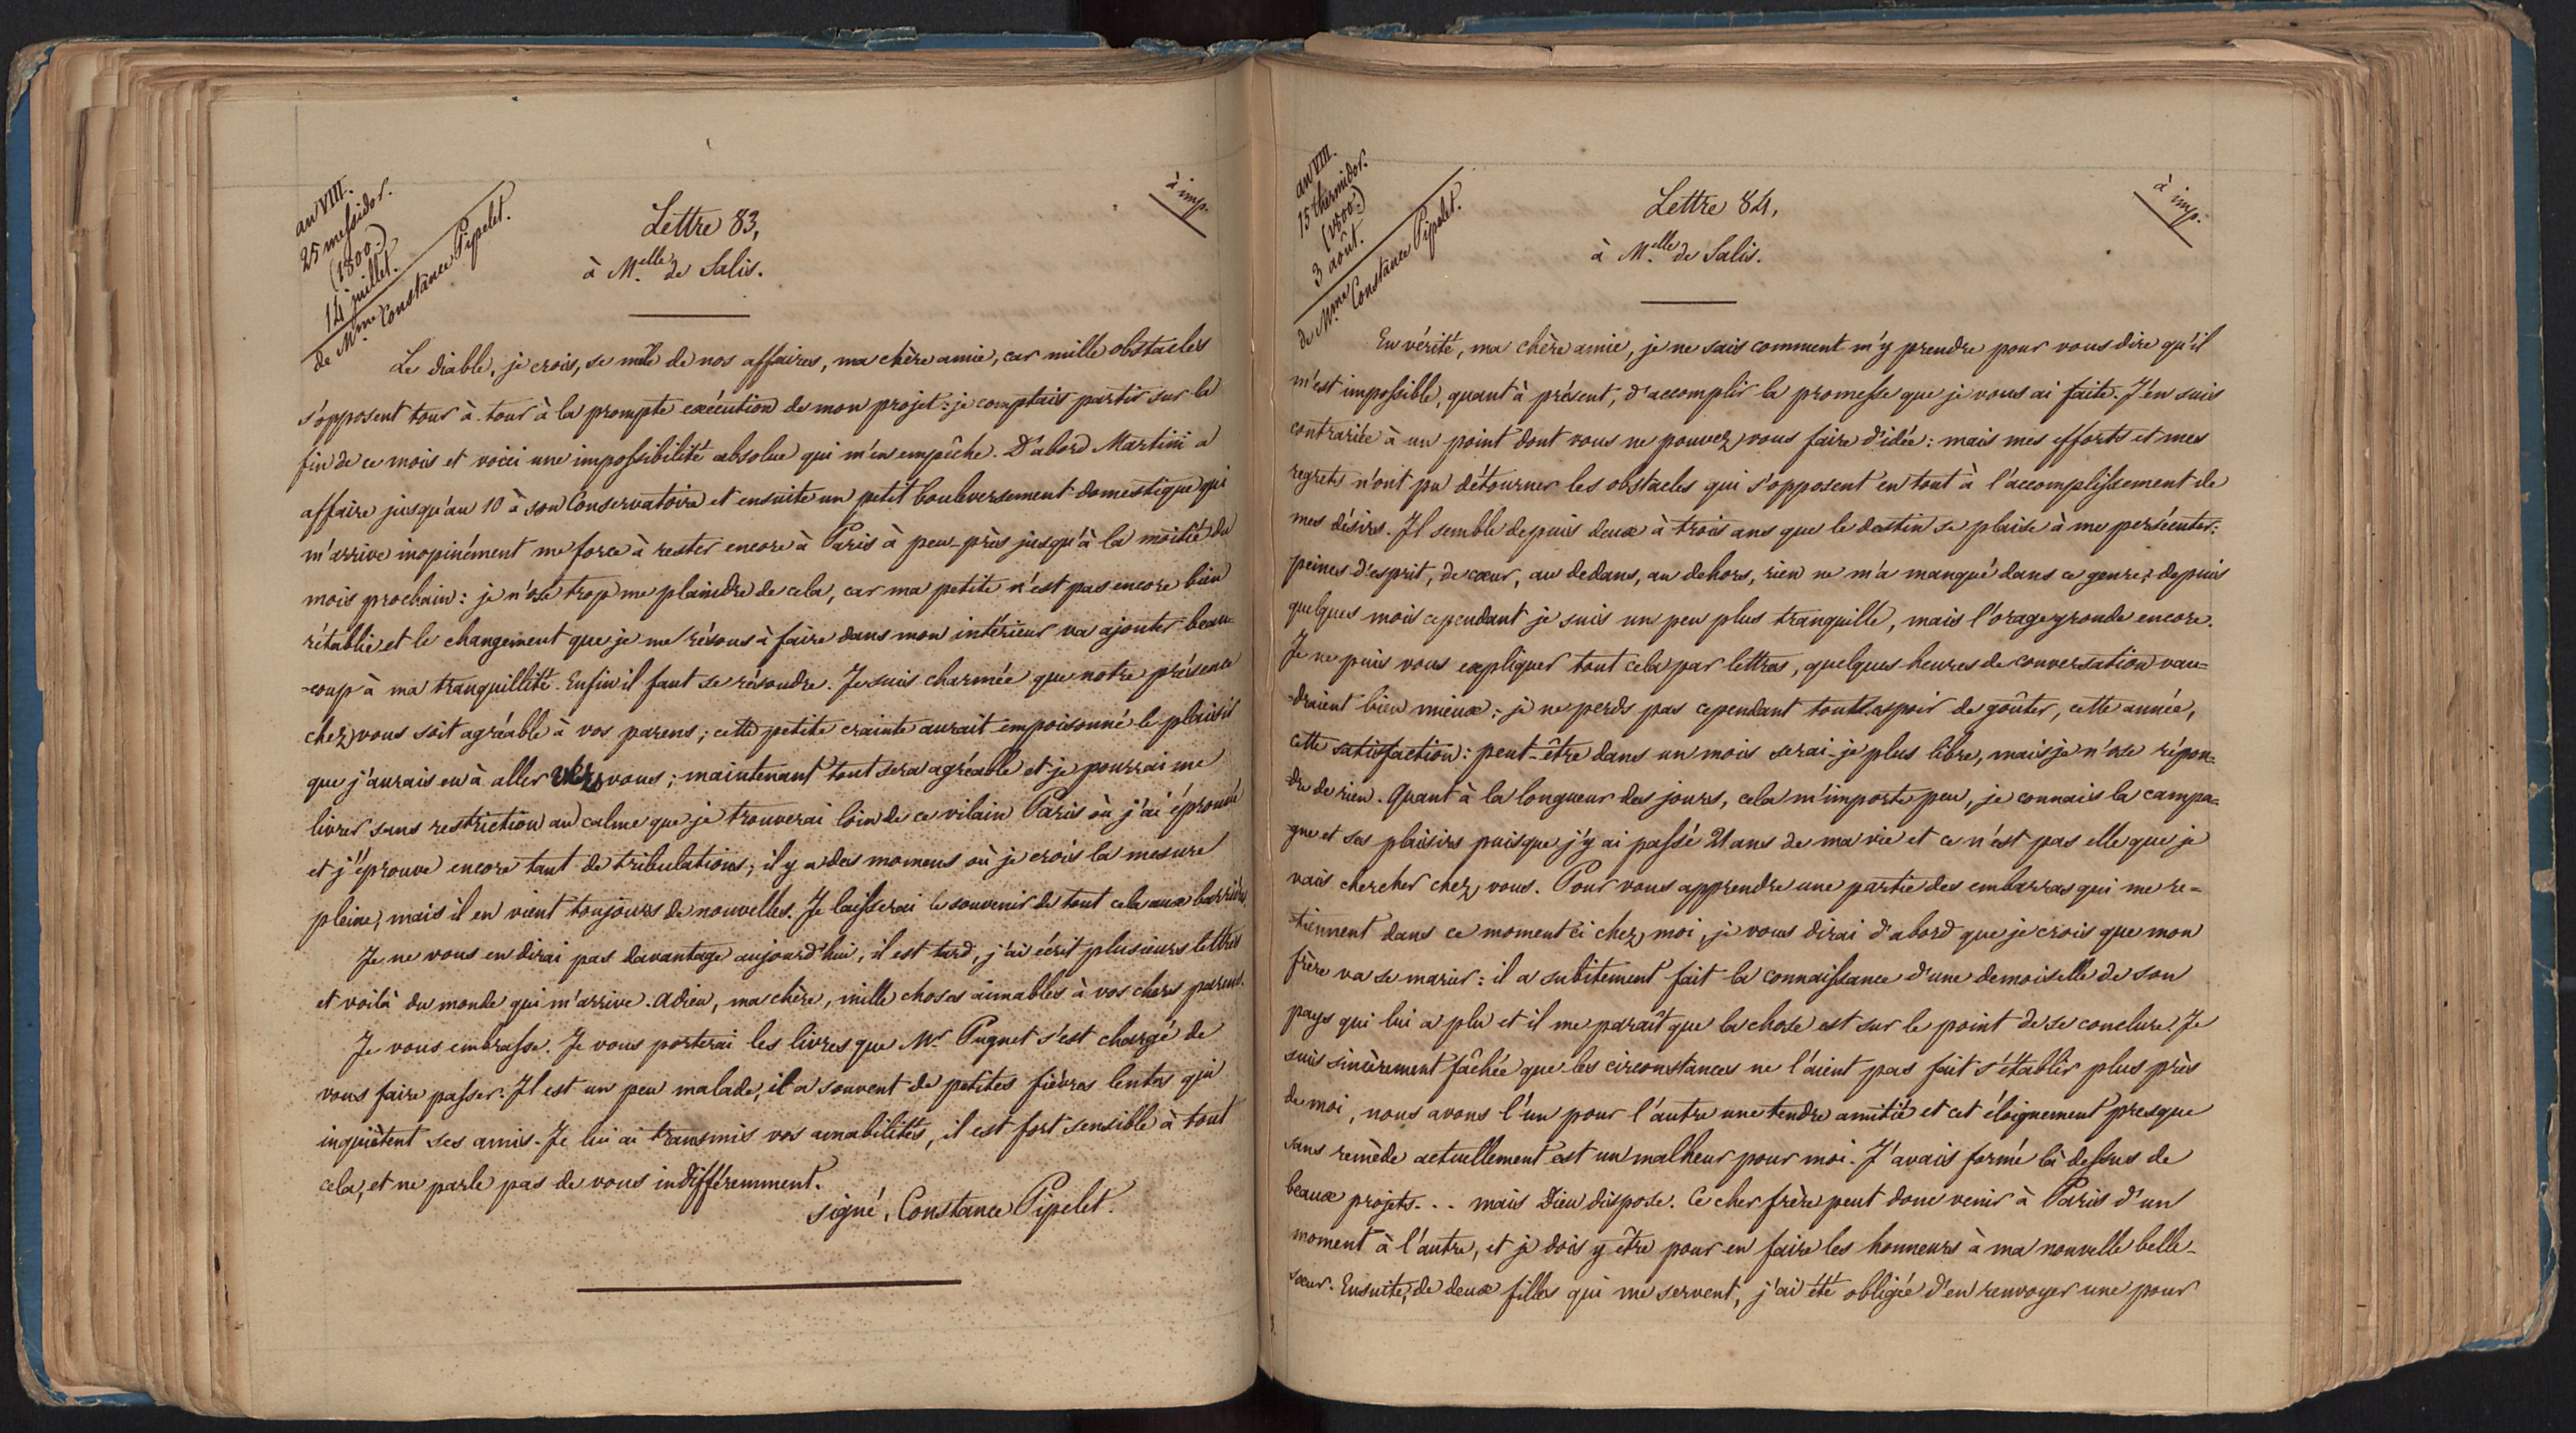 an VIII.
25 messidor.
(1800.)
14 juillet.
de Mme Constance Pipelet.
à imp.
Lettre 83,
à Melle de Salis.
Le diable, je crois, se mêle de nos affaires, ma chère amie, car mille obstacles
s'opposent tour à tour à la prompte exécution de mon projet : je comptais partir sur la
fin de ce mois et voici une impossibilité absolue qui m'en empêche. D'abord Martini a
affaire jusqu'au 10 à son Conservatoire et ensuite un petit bouleversement domestique qui
m'arrive inopinément me force à rester encore à Paris à peu-près jusqu'à la moitié du
mois prochain : je n'ose trop me plaindre de cela, car ma petite n'est pas encore bien
rétablie et le changement que je me résous à faire dans mon intérieur va ajouter beau-
-coup à ma tranquillité. Enfin il faut se résoudre. Je suis charmée que notre présence
chez vous soit agréable à vos parens ; cette petite crainte aurait empoisonné le plaisir
que j'aurais eu à aller vers vous ; maintenant tout sera agréable et je pourrai me
livrer sans restriction au calme que je trouverai loin de ce vilain Paris où j'ai éprouvé
et j'éprouve encore tant de tribulations ; il y a des momens où je crois la mesure
pleine, mais il en vient toujours de nouvelles. Je laisserai le souvenir de tout cela aux barrières.
Je ne vous en dirai pas davantage aujourd'hui, il est tard, j'ai écrit plusieurs lettres
et voilà du monde qui m'arrive. Adieu, ma chère, mille choses aimables à vos chers parens.
Je vous embrasse. Je vous porterai les livres que Mr Pugnet s'est chargé de
vous faire passer. Il est un peu malade, il a souvent de petites fièvres lentes qui
inquiètent ses amis. Je lui ai transmis vos amabilités, il est fort sensible à tout
cela, et ne parle pas de vous indifféremment.
signé, Constance Pipelet.
an VIII.
15 thermidor.
(1800.)
3 août.
de Mme Constance Pipelet.
à imp.
Lettre 84,
à Melle de Salis.
En vérité, ma chère amie, je ne sais comment m'y prendre pour vous dire qu'il
m'est impossible, quant à présent, d'accomplir la promesse que je vous ai faite. J'en suis
contrariée à un point dont vous ne pouvez vous faire d'idée : mais mes efforts et mes
regrets n'ont pu détourner les obstacles qui s'opposent en tout à l'accomplissement de
mes désirs. Il semble depuis deux à trois ans que le destin se plaise à me persécuter :
peines d'esprit, de cœur, au dedans, au dehors, rien ne m'a manqué dans ce genre, depuis
quelques mois cependant je suis un peu plus tranquille, mais l'orage gronde encore.
Je ne puis vous expliquer tout cela par lettres, quelques heures de conversation vau-
-draient bien mieux : je ne perds pas cependant tout espoir de goûter, cette année,
cette satisfaction : peut-être dans un mois serai-je plus libre, mais je n'ose répon-
-dre de rien. Quant à la longueur des jours, cela m'importe peu, je connais la campa-
-gne et ses plaisirs puisque j'y ai passé 21 ans de ma vie et ce n'est pas elle que je
vais chercher chez vous. Pour vous apprendre une partie des embarras qui me re-
-tiennent dans ce moment ci chez moi, je vous dirai d'abord que je crois que mon
frère va se marier : il a subitement fait la connaissance d'une demoiselle de son
pays qui lui a plu et il me paraît que la chose est sur le point de se conclure. Je
suis sincèrement fâchée que les circonstances ne l'aient pas fait s'établir plus près
de moi, nous avons l'un pour l'autre une tendre amitié et cet éloignement presque
sans remède actuellement est un malheur pour moi. J'avais formé là dessus de
beaux projets... mais Dieu dispose. Ce cher frère peut donc venir à Paris d'un
moment à l'autre, et je dois y être pour en faire les honneurs à ma nouvelle belle-
sœur. Ensuite, de deux filles qui me servent, j'ai été obligée d'en renvoyer une pour